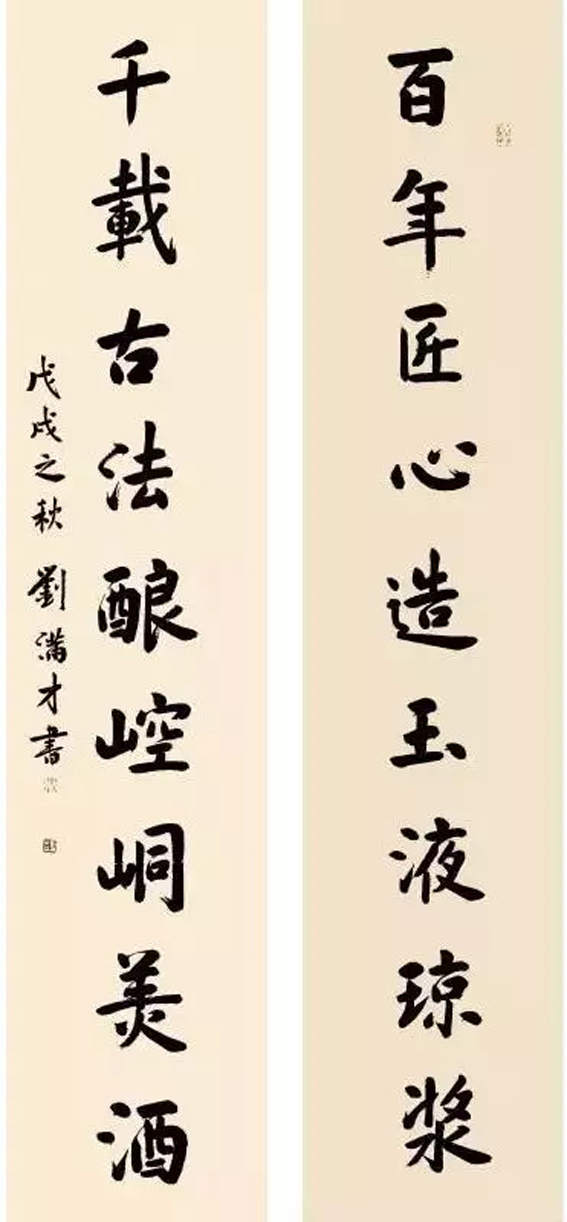 百年匠心造玉液琼浆
千載古法酿崆峒美酒
戊戌之秋 劉満才書